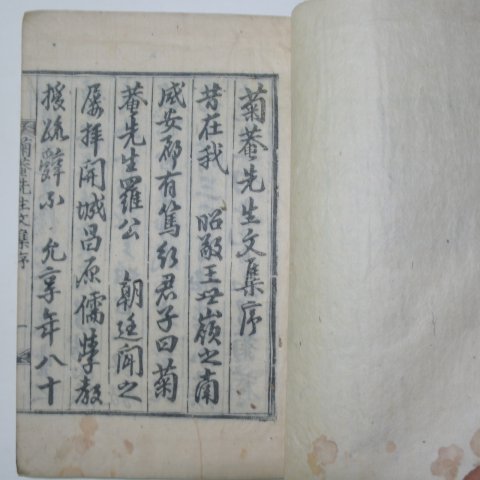 菊菴先生文集序
昔在我 昭敬王世嶺之南
咸安郡有篤行君子曰菊
菴先生羅公 朝廷聞之
屡拜開城昌原儒學教
授疏辭不 允享年八十
菊菴先生文集序